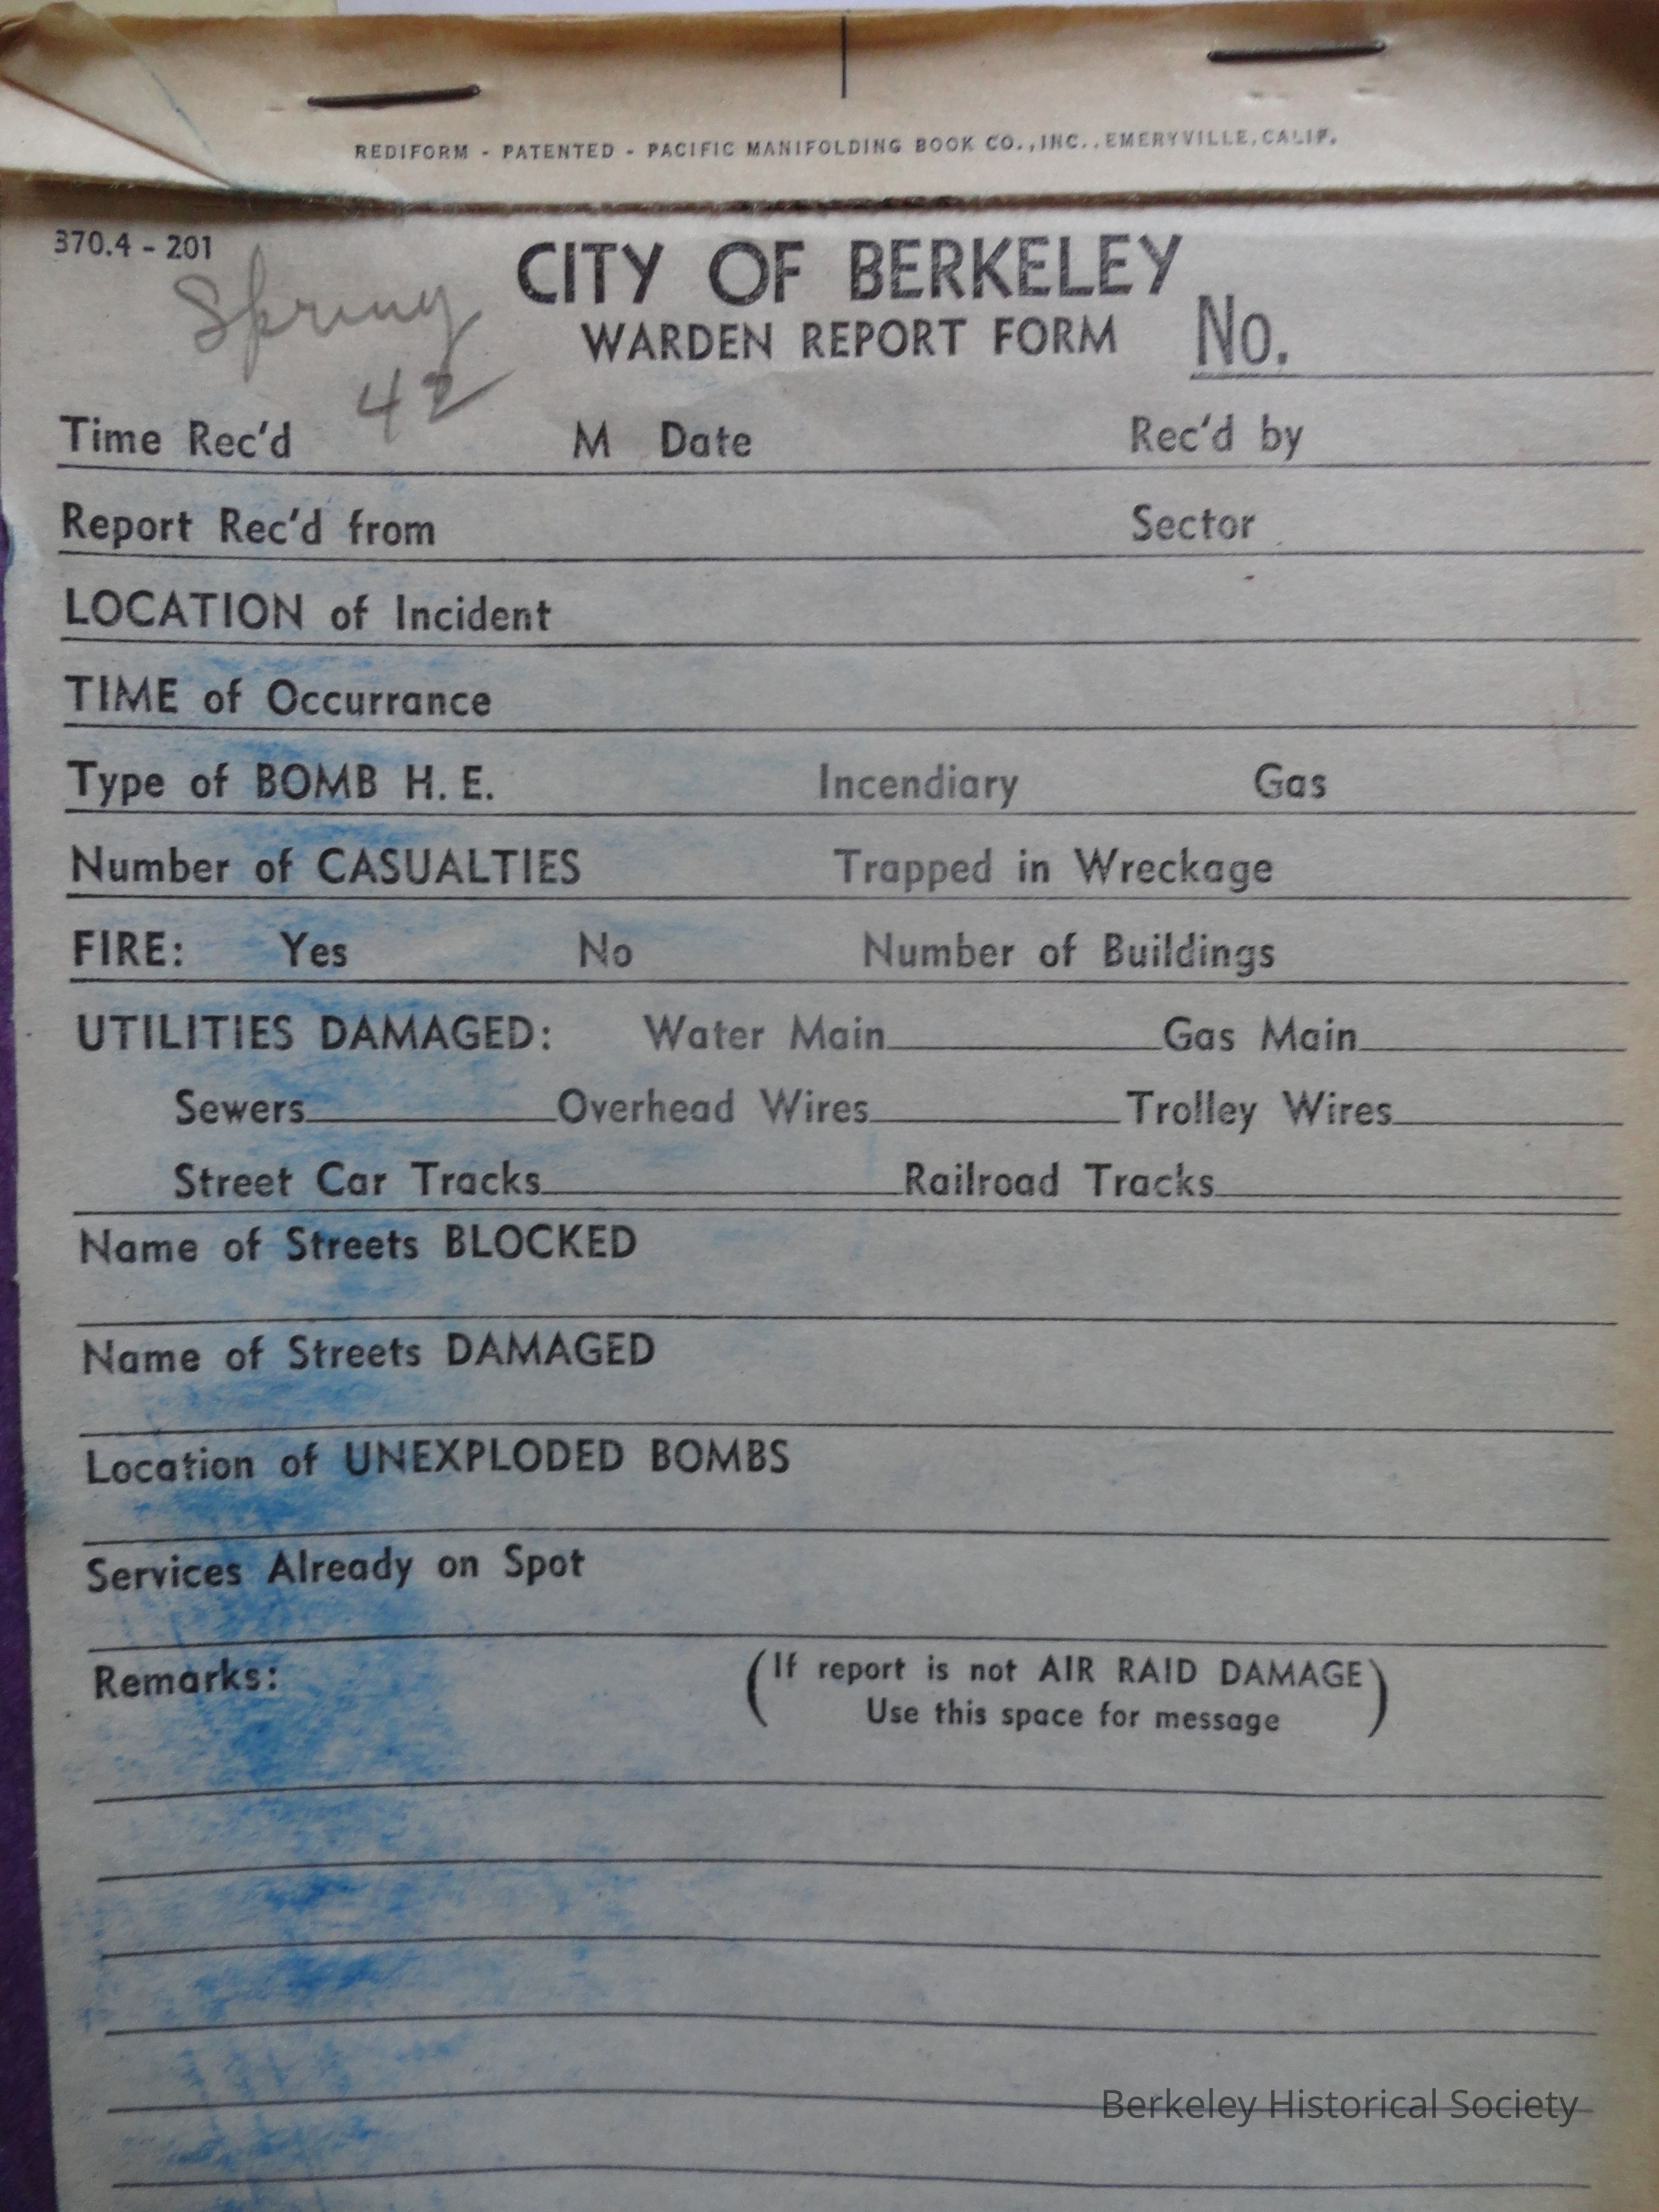 REDIFORM - PATENTED - PACIFIC MANIFOLDING BOOK CO., INC., EMERYVILLE, CALIF.
370.4 - 201
Spring
42
CITY OF BERKELEY
WARDEN REPORT FORM No.
Time Rec'd M Date Rec'd by
Report Rec'd from Sector
LOCATION of Incident
TIME of Occurrance
Type of BOMB H. E. Incendiary Gas
Number of CASUALTIES Trapped in Wreckage
FIRE: Yes No Number of Buildings
UTILITIES DAMAGED: Water Main Gas Main
Sewers Overhead Wires Trolley Wires
Street Car Tracks Railroad Tracks
Name of Streets BLOCKED
Name of Streets DAMAGED
Location of UNEXPLODED BOMBS
Services Already on Spot
Remarks: (If report is not AIR RAID DAMAGE
Use this space for message)
Berkeley Historical Society